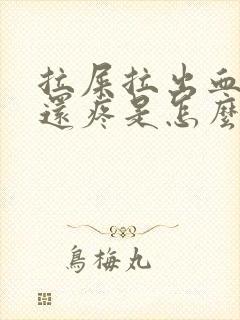 拉屎拉出血
還疼是怎麼
烏梅丸